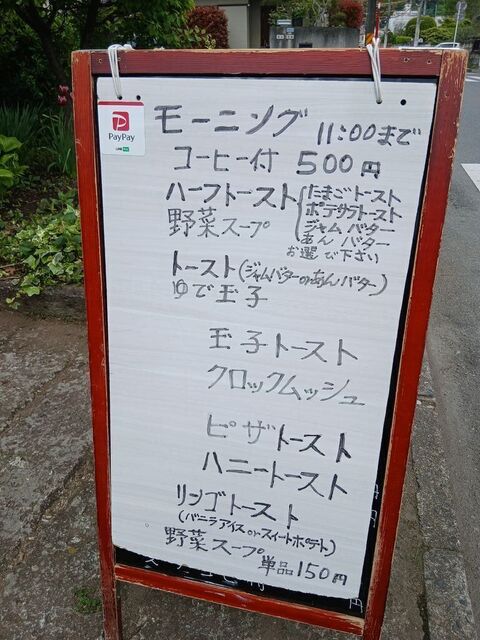 PayPay
モーニング 11:00まで
コーヒー付 500円
ハーフトースト
野菜スープ
たまごトースト
ポテサラトースト
ジャムバター
あんバター
お選び下さい
トースト(ジャムバターorあんバター)
ゆで玉子
玉子トースト
クロックムッシュ
ピザトースト
ハニートースト
リンゴトースト
(バニラアイスorスイートポテト)
野菜スープ
単品150円
円